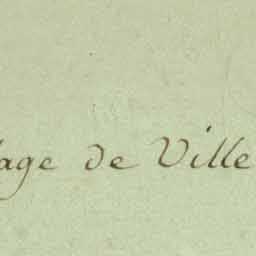 age de Ville